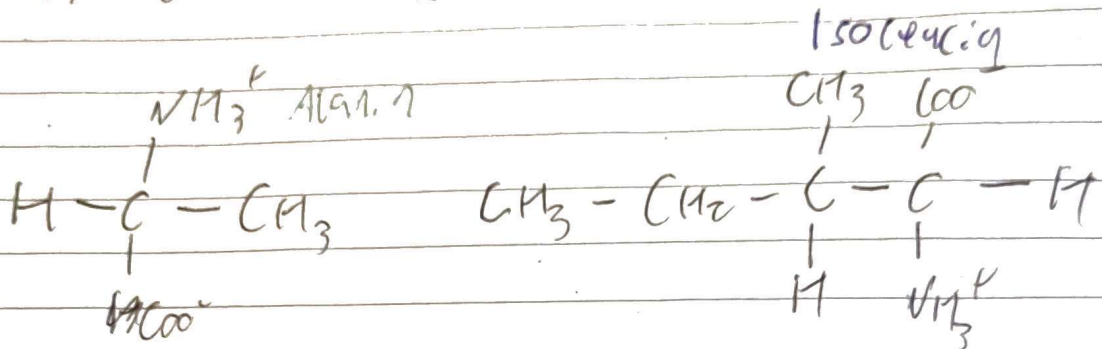 Isoleucin
NH3+ Alanin CH3 COO
H - C - CH3 CH3 - CH2 - C - C - H
COO- H NH3+